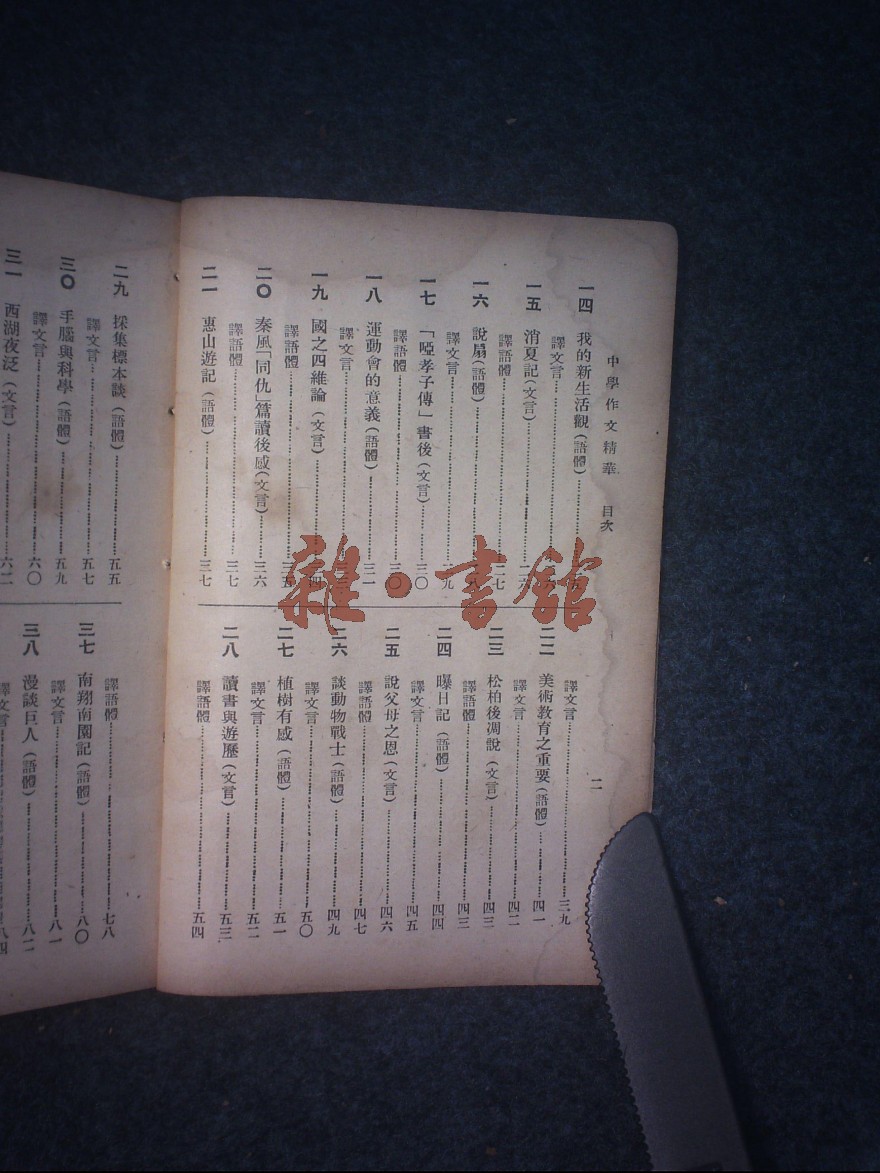 中學作文精華 目次
二
一四 我的新生活觀(語體)……
譯文言……
一五 消夏記(文言)……二六
譯語體……二七
一六 說扇(語體)……
譯文言……九
一七 「啞孝子傳」書後(文言)……三〇
譯語體……三〇
一八 運動會的意義(語體)……三一
譯文言……
一九 國之四維論(文言)……四
譯語體……三五
二〇 秦風「同仇」篇讀後感(文言)……三六
譯語體……三七
二一 惠山遊記(語體)……三七
譯文言……三九
二二 美術教育之重要(語體)……四一
譯文言……四二
二三 松柏後凋說(文言)……四三
譯語體……四三
二四 曝日記(語體)……四四
譯文言……四五
二五 說父母之恩(文言)……四六
譯語體……四七
二六 談動物戰士(語體)……四九
譯文言……五〇
二七 植樹有感(語體)……五一
譯文言……五二
二八 讀書與遊歷(文言)……五三
譯語體……五四
二九 採集標本談(語體)……五五
譯文言……五七
三〇 手腦與科學(語體)……五九
譯文言……六〇
三一 西湖夜泛(文言)……六二
譯語體……七八
三七 南翔南園記(語體)……八〇
譯文言……八一
三八 漫談巨人(語體)……八二
譯文言……八四
雜·書館